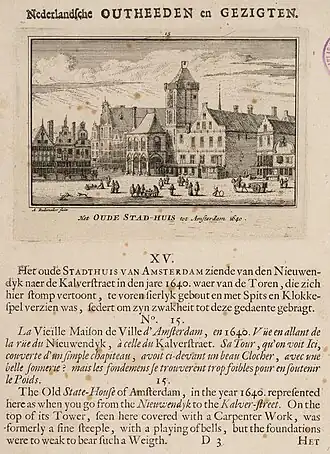 Nederlandsche OUTHEEDEN en GEZIGTEN.
15
A. Rademaker fecit
Het OUDE STAD-HUIS tot Amsterdam 1640.
XV.
Het oude STADTHUIS VAN AMSTERDAM ziende van den Nieuwen-
dyk naer de Kalverstraet in den jare 1640. waer van de Toren, die zich
hier stomp vertoont, te voren sierlyk gebout en met Spits en Klokke-
spel verzien was, sedert om zyn zwakheit tot deze gedaente gebragt.
N°. 15.
La Vieille Maison de Ville d'Amsterdam, en 1640. Vüe en allant de
la rüe du Nieuwendyk, à celle du Kalverstraet. Sa Tour, qu'on voit Ici,
couverte d'un simple chapiteau, avoit ci-devant un beau Clocher, avec une
belle sonnerie? mais les fondemens se trouverent trop foibles pour en soutenir
le Poids.
15.
The Old State-House of Amsterdam, in the year 1640. represented
here as when you go from the Nieuwendyk to the Kalver-street. On the
top of its Tower, seen here covered with a Carpenter Work, was
formerly a fine steeple, with a playing of bells, but the foundations
were to weak to bear such a Weigth.
D 3
HET